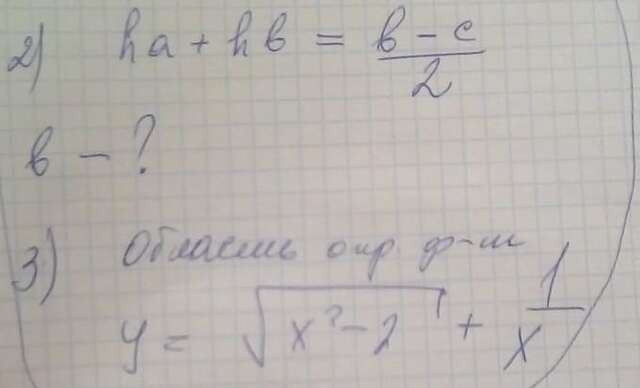 2) ha + hb = (b - c)/2
b - ?
3) Область опр. ф-ии
y = √(x² - 2) + 1/x